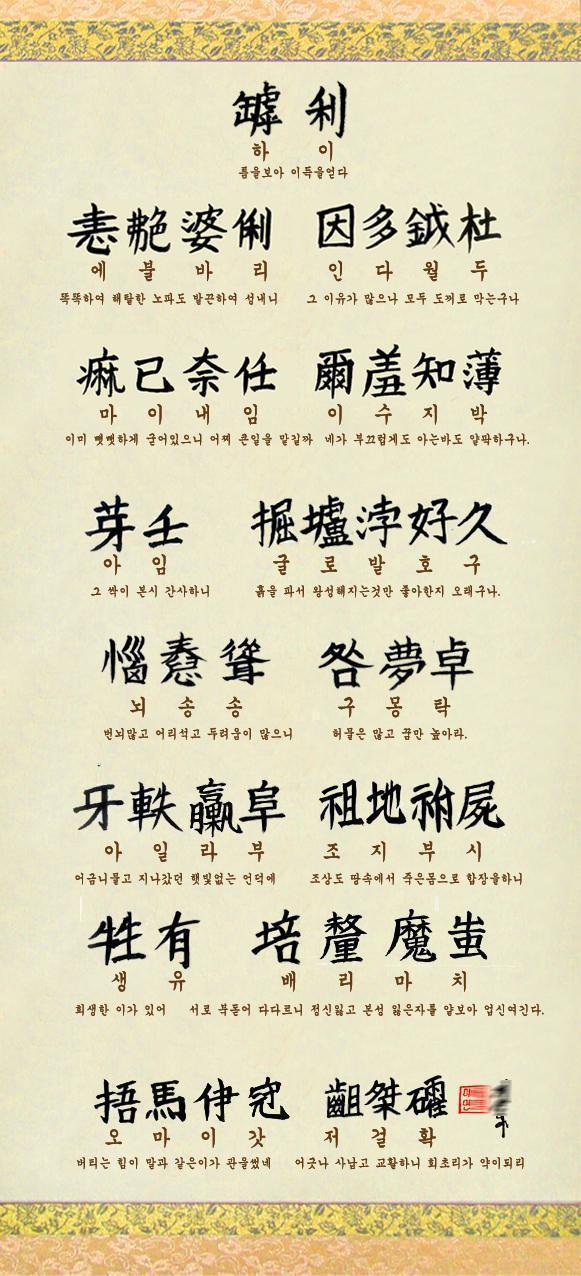 罅 利
하 이
틈을보아 이득을얻다
恚艴婆俐 因多鉞杜
에 불 바 리 인 다 월 두
똑똑하여 해탈한 노파도 발끈하여 성내니 그 이유가 많으나 모두 도끼로 막는구나
痲已奈任 爾羞知薄
마 이 내 임 이 수 지 박
이미 뻣뻣하게 굳어있으니 어찌 큰일을 맡길까 네가 부끄럽게도 아는바도 얄팍하구나.
芽壬 掘壚浡好久
아 임 굴 로 발 호 구
그 싹이 본시 간사하니 흙을 파서 왕성해지는것만 좋아한지 오래구나.
惱憃聳 咎夢卓
뇌 송 송 구 몽 탁
번뇌많고 어리석고 두려움이 많으니 허물은 많고 꿈만 높아라.
牙軼臝阜 祖地祔屍
아 일 라 부 조 지 부 시
어금니물고 지나갔던 햇빛없는 언덕에 조상도 땅속에서 죽은몸으로 합장을하니
牲有 培釐魔蚩
생 유 배 리 마 치
희생한 이가 있어 서로 북돋어 다다르니 정신잃고 본성 잃은자를 얕보아 업신여긴다.
捂馬伊冠 齟桀
오 마 이 갓 저 걸 확
버티는 힘이 말과 같은이가 관을썼네 어긋나 사납고 교활하니 회초리가 약이되리